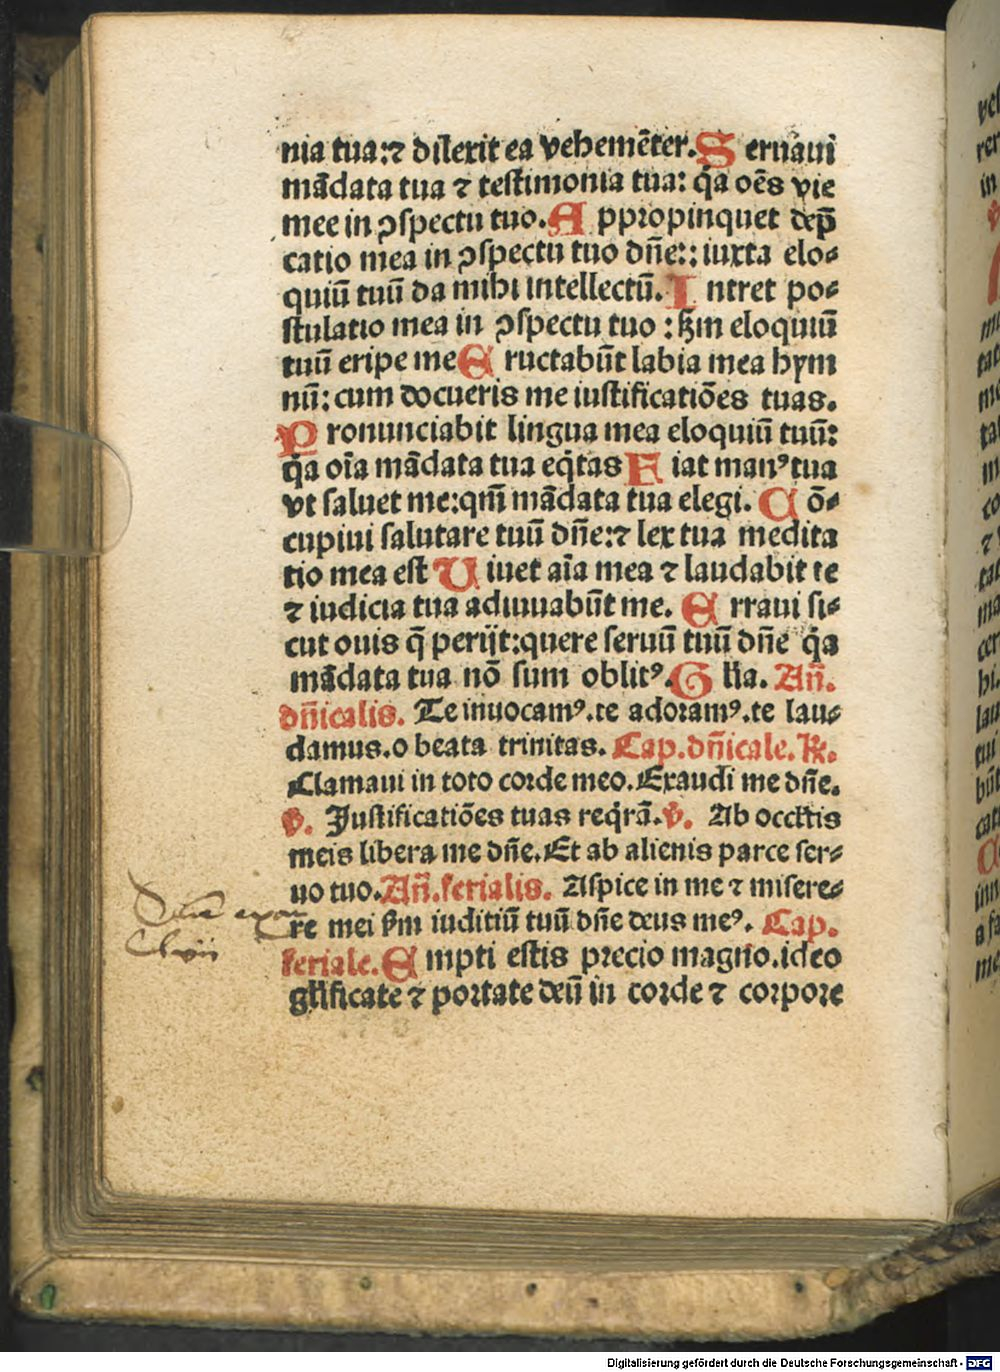 nia tua:⁊ dilexit ea vehemēter. Seruaui
mādata tua ⁊ testimonia tua: q̇a oēs vie
mee in ꝯspectu tuo. Appropinquet dep̄
catio mea in ꝯspectu tuo dn̄e:: iuxta elo⸗
quiū tuū da mihi intellectū. Intret po⸗
stulatio mea in ꝯspectu tuo : ẜm eloquiū
tuū eripe me Eructabūt labia mea hym
nū: cum docueris me iustificatiōes tuas.
Pronunciabit lingua mea eloquiū tuū:
q̇a oīa mādata tua eq̇tas Fiat manꝰ tua
vt saluet me:qm̄ mādata tua elegi. Cō⸗
cupiui salutare tuū dn̄e:⁊ lex tua medita
tio mea est Uiuet aīa mea ⁊ laudabit te
⁊ iudicia tua adiuuabūt me. Erraui si⸗
cut ouis q̄ perijt:quere seruū tuū dn̄e q̇a
mādata tua nō sum oblitꝰ. Gl̄ia. Añ.
dn̄icalis. Te inuocamꝰ.te adoramꝰ.te lau⸗
damus.o beata trinitas. Cap.dn̄icale. ℟.
Clamaui in toto corde meo. Exaudi me dn̄e.
℣. Iustificatiōes tuas req̇rā. ℣. Ab occl̄tis
meis libera me dn̄e. Et ab alienis parce ser⸗
uo tuo. Añ.ferialis. Aspice in me ⁊ misere⸗
re mei ẜm iuditiū tuū dn̄e deus meꝰ. Cap.
feriale. Empti estis precio magno.ideo
gl̄ificate ⁊ portate deū in corde ⁊ corpore
Digitalisierung gefördert durch die Deutsche Forschungsgemeinschaft - DFG